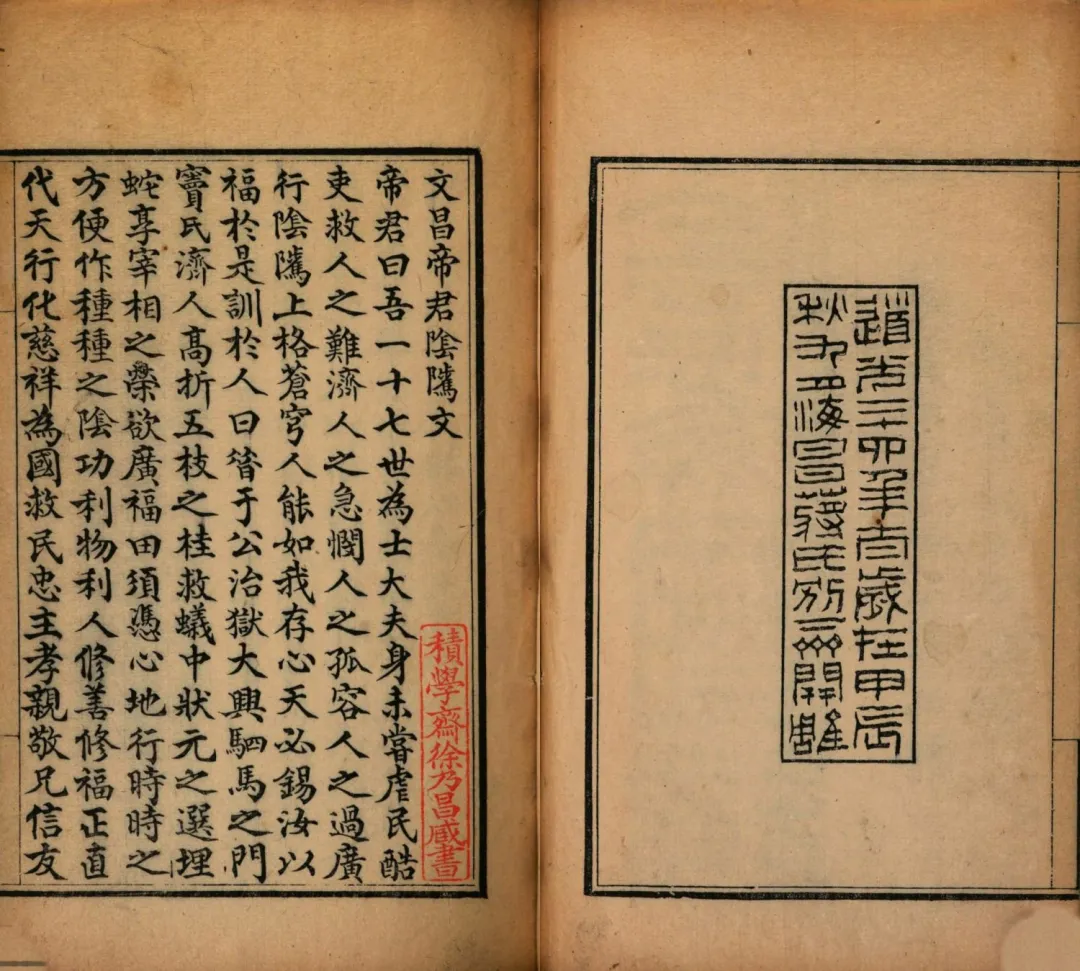 道光二十四年太歲在甲辰
秋九月海昌蔣氏別下齋開雕
文昌帝君陰隲文
積學齋徐乃昌藏書
帝君曰吾一十七世為士大夫身未嘗虐民酷
吏救人之難濟人之急憫人之孤容人之過廣
行陰隲上格蒼穹人能如我存心天必錫汝以
福於是訓於人曰昝于公治獄大興駟馬之門
竇氏濟人高折五枝之桂救蟻中狀元之選埋
蛇享宰相之榮欲廣福田須憑心地行時時之
方便作種種之陰功利物利人修善修福正直
代天行化慈祥為國救民忠主孝親敬兄信友